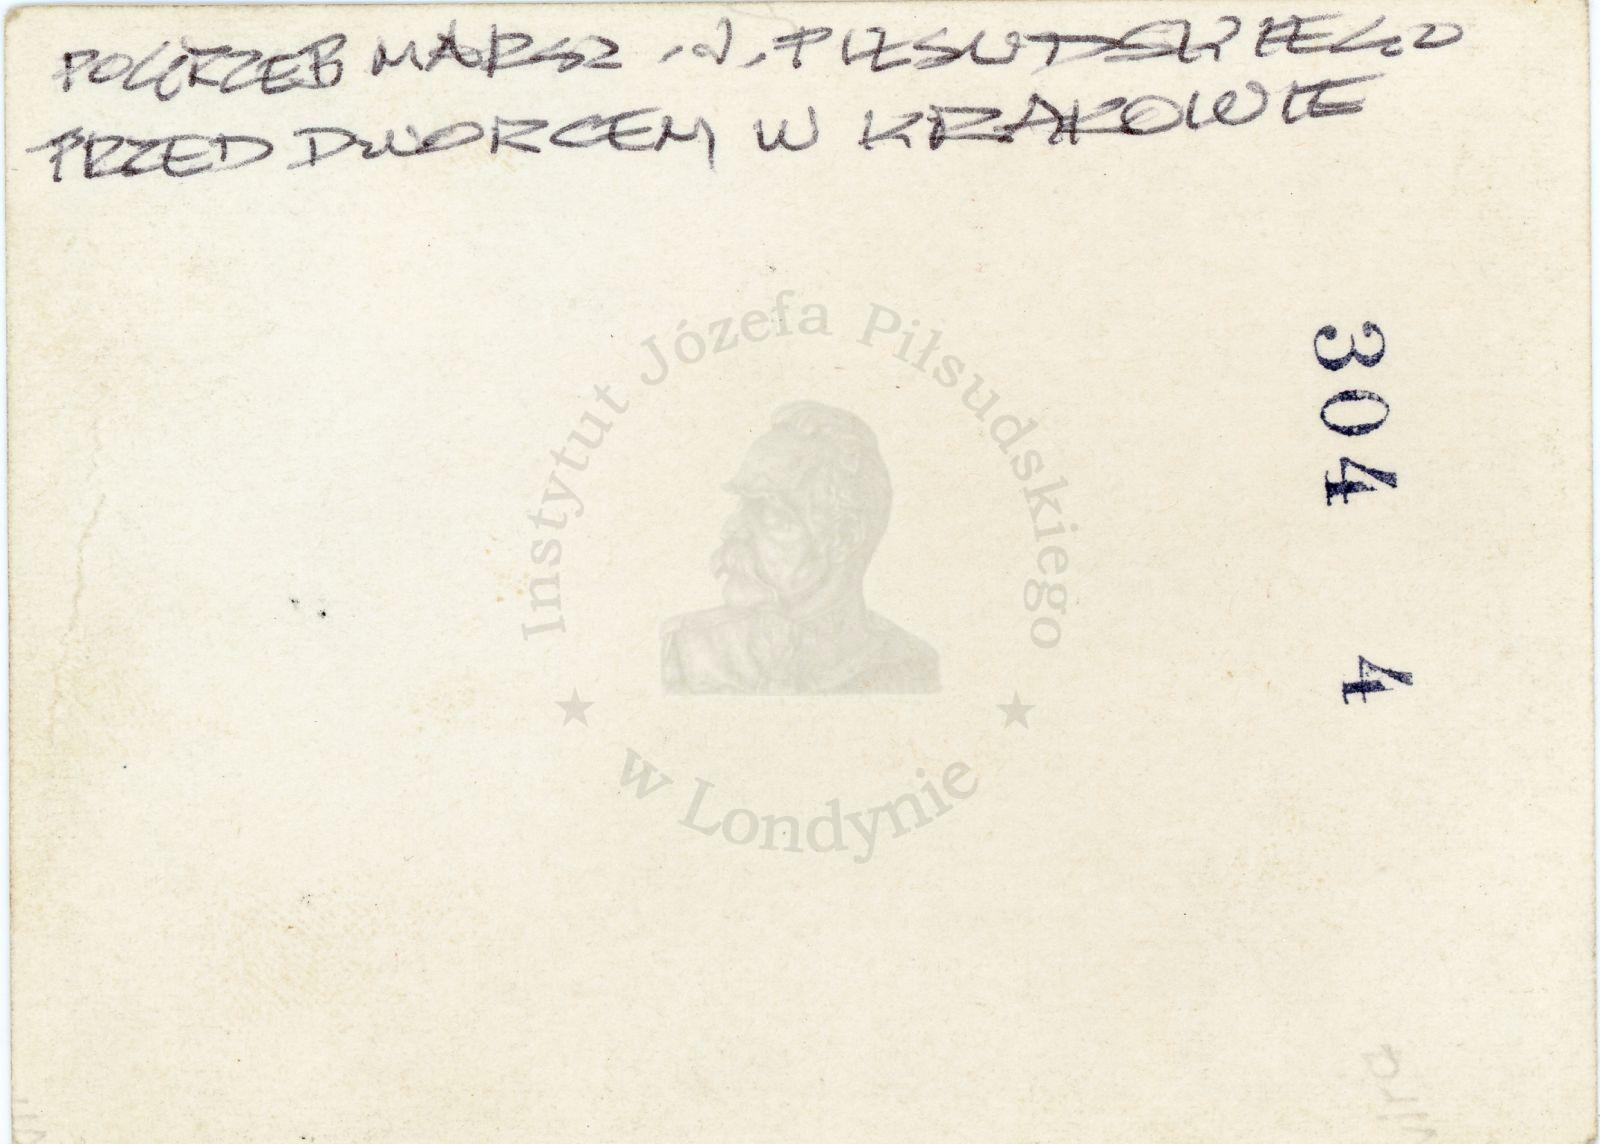 POGRZEB MARSZ. J. PIŁSUDSKIEGO
PRZED DWORCEM W KRAKOWIE
304 4
Instytut Józefa Piłsudskiego
w Londynie